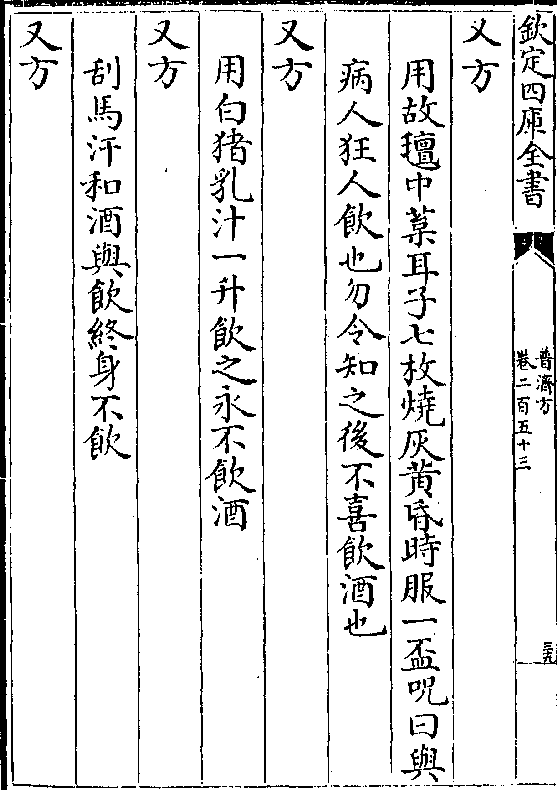 欽定四庫全書
普濟方
卷二百五十三
三九
又方
用故氊中菓耳子七枚燒灰黄昏時服一盃呪曰與
病人狂人飲也勿令知之後不喜飲酒也
又方
用白猪乳汁一升飲之永不飲酒
又方
刮馬汗和酒與飲終身不飲
又方